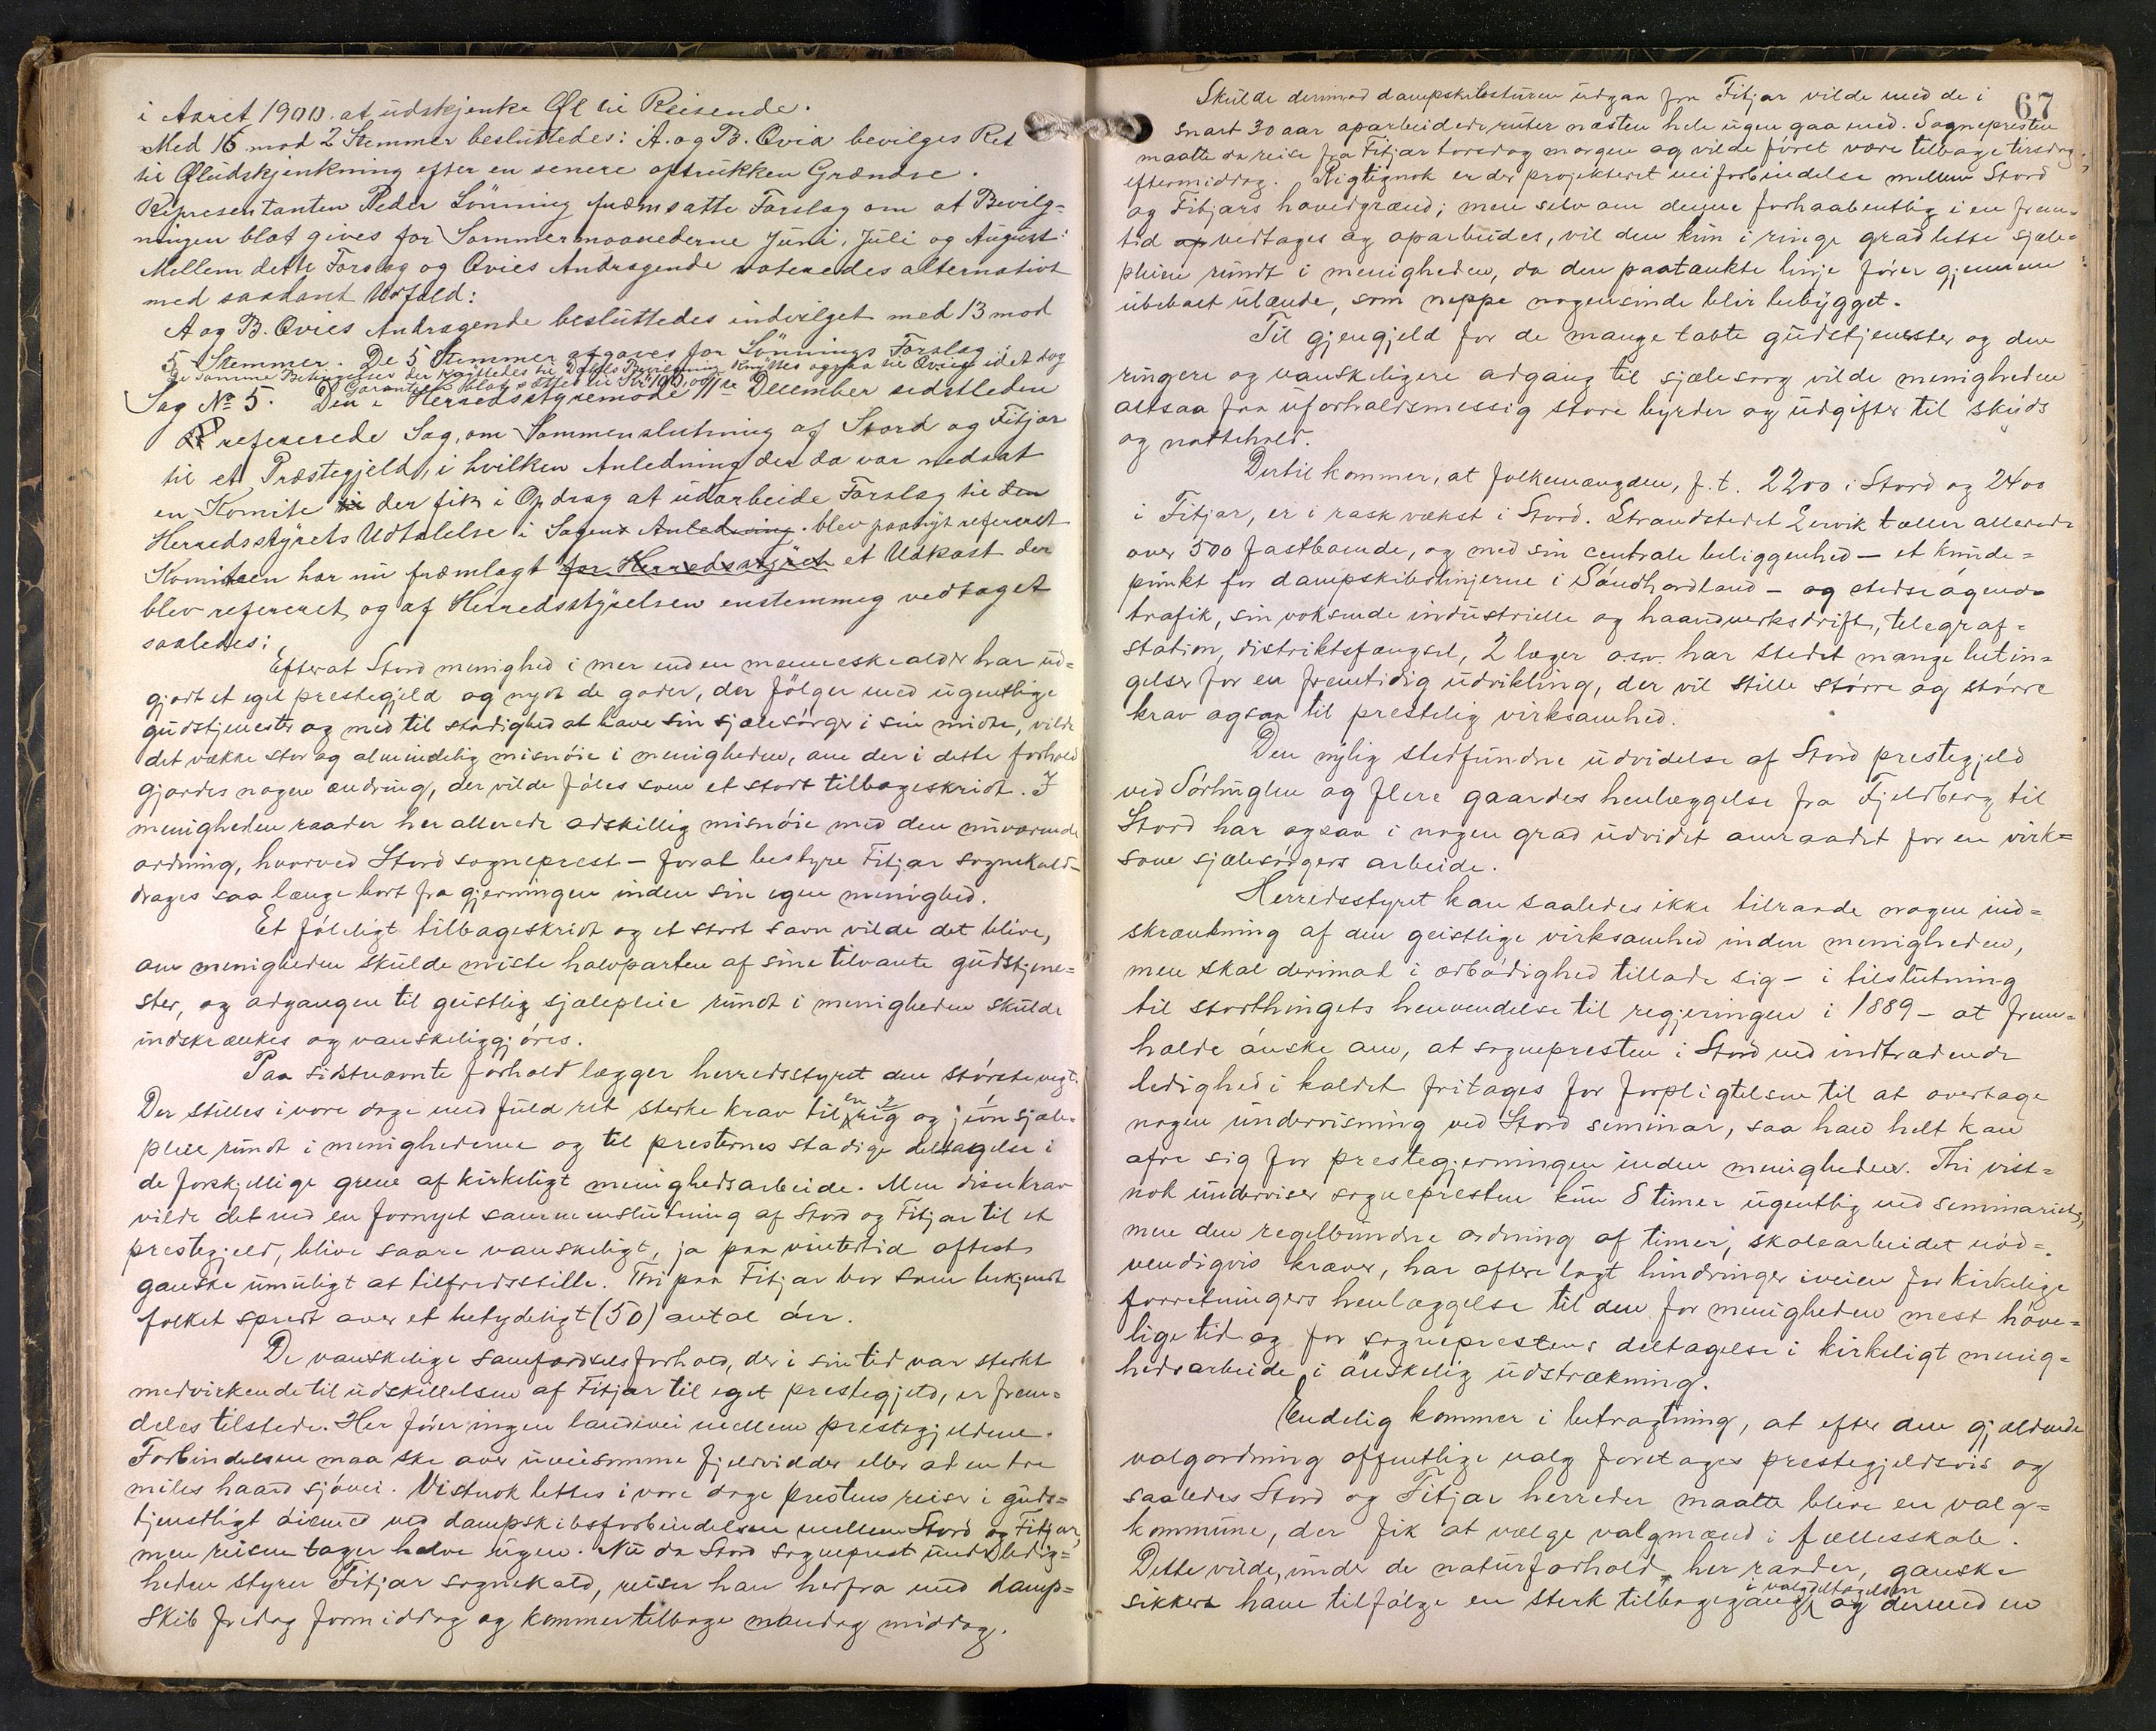 i Aaret 1900. at udskjenke Øl til Reisende.
Med 16 mod 2 Stemmer besluttedes: A. og B. Qvia bevilges Ret
til Øludskjenkning efter en senere optrukken Grændse.
Representanten Peder Lönning fremsatte Forslag om at Bevilg-
ningen blot gives for Sommermaanederne Juni, Juli og August:
Mellem dette Forslag og Qvies Andragende voteredes alternativt
med saadant Udfald:
A og B. Qvies Andragende besluttedes indvilget med 13 mod
5 Stemmer. De 5 Stemmer afgaves for Lönnings Forslag.
De samme Betingelser der knyttedes til Bevilgning knyttes ogsaa til Qvies idet dog
Garantien blot sættes til Kr 100,00
Sag № 5. Den i Herredsstyremöde 11te December sidstleden
refererede Sag, om Sammenslutning af Stord og Fitjar
til et Præstegjeld, i hvilken Anledning der da var nedsat
en Komite der fik i Opdrag at udarbeide Forslag til den
Herredsstyrets Udtalelse i Sagens Anledning. blev paanyt refereret
Komiteen har nu fremlagt for Herredsstyret et Udkast der
blev refereret og af Herredsstyrelsen enstemmig vedtaget
saaledes:
Efterat Stord menighed i mer end en menneskealder har ud-
gjort et eget prestegjeld og nydt de goder, der fölger med ugentlige
gudstjenester og med til stadighed at have sin sjælesörger i sin midte, vilde
det vække stor og almindelig misnöie i menigheden, om der i dette forhold
gjordes nogen ændring, der vilde föles som et stort tilbageskridt. I
menigheden raader her allerede adskillig misnöie med den nuværende
ordning, hvorved Stord sogneprest – for at bestyre Fitjar sognekald –
drages saa længe bort fra gjerningen inden sin egen menighed.
Et föleligt tilbageskridt og et stort savn vilde det blive,
om menigheden skulde miste halvparten af sine tilvante gudstjene-
ster, og adgangen til geistlig sjælepleie rundt i menigheden skulde
indskrænkes og vanskeliggjöres.
Paa sidstnævnte forhold lægger herredsstyret den störste vegt.
Der stilles i vore dage med fuld ret sterke krav til en rig og jevn sjæle-
pleie rundt i menighederne og til presternes stadige deltagelse i
de forskjellige grene af kirkeligt menighedsarbeide. Men disse krav
vilde det ved en fornyet sammenslutning af Stord og Fitjar til et
prestegjeld, blive saare vanskeligt, ja paa vintertid oftest
ganske umuligt at tilfredsstille. Thi paa Fitjar bor som bekjendt
folket spredt over et betydeligt (50) antal öer.
De vanskelige samfærdselsforhold, der i sin tid var sterkt
medvirkende til udskillelsen af Fitjar til eget prestegjeld, er frem-
deles tilstede. Her förer ingen landevei mellem prestegjeldene.
Forbindelsen maa ske over uveisomme fjeldvidder eller ad en tre
miles haard sjövei. Vistnok lettes i vore dage prestens reiser i guds-
tjenstligt öiemed ved dampskibsforbindelsen mellem Stord og Fitjar,
men reisen tager halve ugen. Nu da Stord sogneprest under ledig-
heden styrer Fitjar sognekald, reiser han herfra med damp-
skib fredag formiddag og kommer tilbage mandag middag.
67
Skulde derimod dampskibsturen udgaa fra Fitjar vilde med de i
snart 30 aar oparbeidede ruter næsten hele ugen gaa med. Sognepresten
maatte da reise fra Fitjar torsdag morgen og vilde först være tilbage tirsdag
eftermiddag. Rigtignok er der projekteret veiforbindelse mellem Stord
og Fitjars hovedgrænd; men selv om denne forhaabentlig i en frem-
tid op vedtages og oparbeides, vil den kun i ringe grad lette sjæle-
pleien rundt i menigheden, da den paatænkte linje förer gjennem
ubeboet ulænde, som neppe nogensinde blir bebygget.
Til gjengjeld for de mange tabte gudstjenester og den
ringere og vanskeligere adgang til sjælesorg vilde menigheden
altsaa faa uforholdsmessig store byrder og udgifter til skyds
og nattehold.
Dertil kommer, at folkemængden, f. t. 2200 i Stord og 2400
i Fitjar, er i rask vækst i Stord. Strandstedet Lervik tæller allerede
over 500 fastboende, og med sin centrale beliggenhed – et knude-
punkt for dampskibslinjerne i Söndhordland – og stedse ögende
trafik, sin voksende industrielle og haandverksdrift, telegraf-
station, distriktsfængsel, 2 læger o.s.v. har stedet mange betin-
gelser for en fremtidig udvikling, der vil stille större og större
krav ogsaa til prestelig virksomhed.
Den nylig stedfundne udvidelse af Stord prestegjeld
ved Sörhuglen og flere gaardes henlæggelse fra Fjeldberg til
Stord har ogsaa i nogen grad udvidet omraadet for en virk-
som sjælesörgers arbeide.
Herredsstyret kan saaledes ikke tilraade nogen ind-
skrænkning af den geistlige virksomhed inden menigheden,
men skal derimod i ærbödighed tillade sig – i tilslutning
til storthingets henvendelse til regjeringen i 1889 – at frem-
holde önske om, at sognepresten i Stord ved indtrædende
ledighed i kaldet fritages for forpligtelsen til at overtage
nogen undervisning ved Stord seminar, saa han helt kan
ofre sig for prestegjerningen inden menigheden. Thi vist-
nok underviser sognepresten kun 8 timer ugentlig ved seminariet,
men den regelbundne ordning af timer, skolearbeidet nöd-
vendigvis kræver, har oftere lagt hindringer iveien for kirkelige
forretningers henlæggelse til den for menigheden mest höve-
lige tid og for sogneprestens deltagelse i kirkeligt menig-
hedsarbeide i önskelig udstrækning.
Endelig kommer i betragtning, at efter den gjældende
valgordning offentlige valg foretages prestegjeldsvis og
saaledes Stord og Fitjar herreder maatte blive en valg-
kommune, der fik at vælge valgmænd i fællesskab.
Dette vilde, under de naturforhold, her raader, ganske
sikkert have tilfölge en sterk tilbagegang i valgdeltagelsen og dermed en